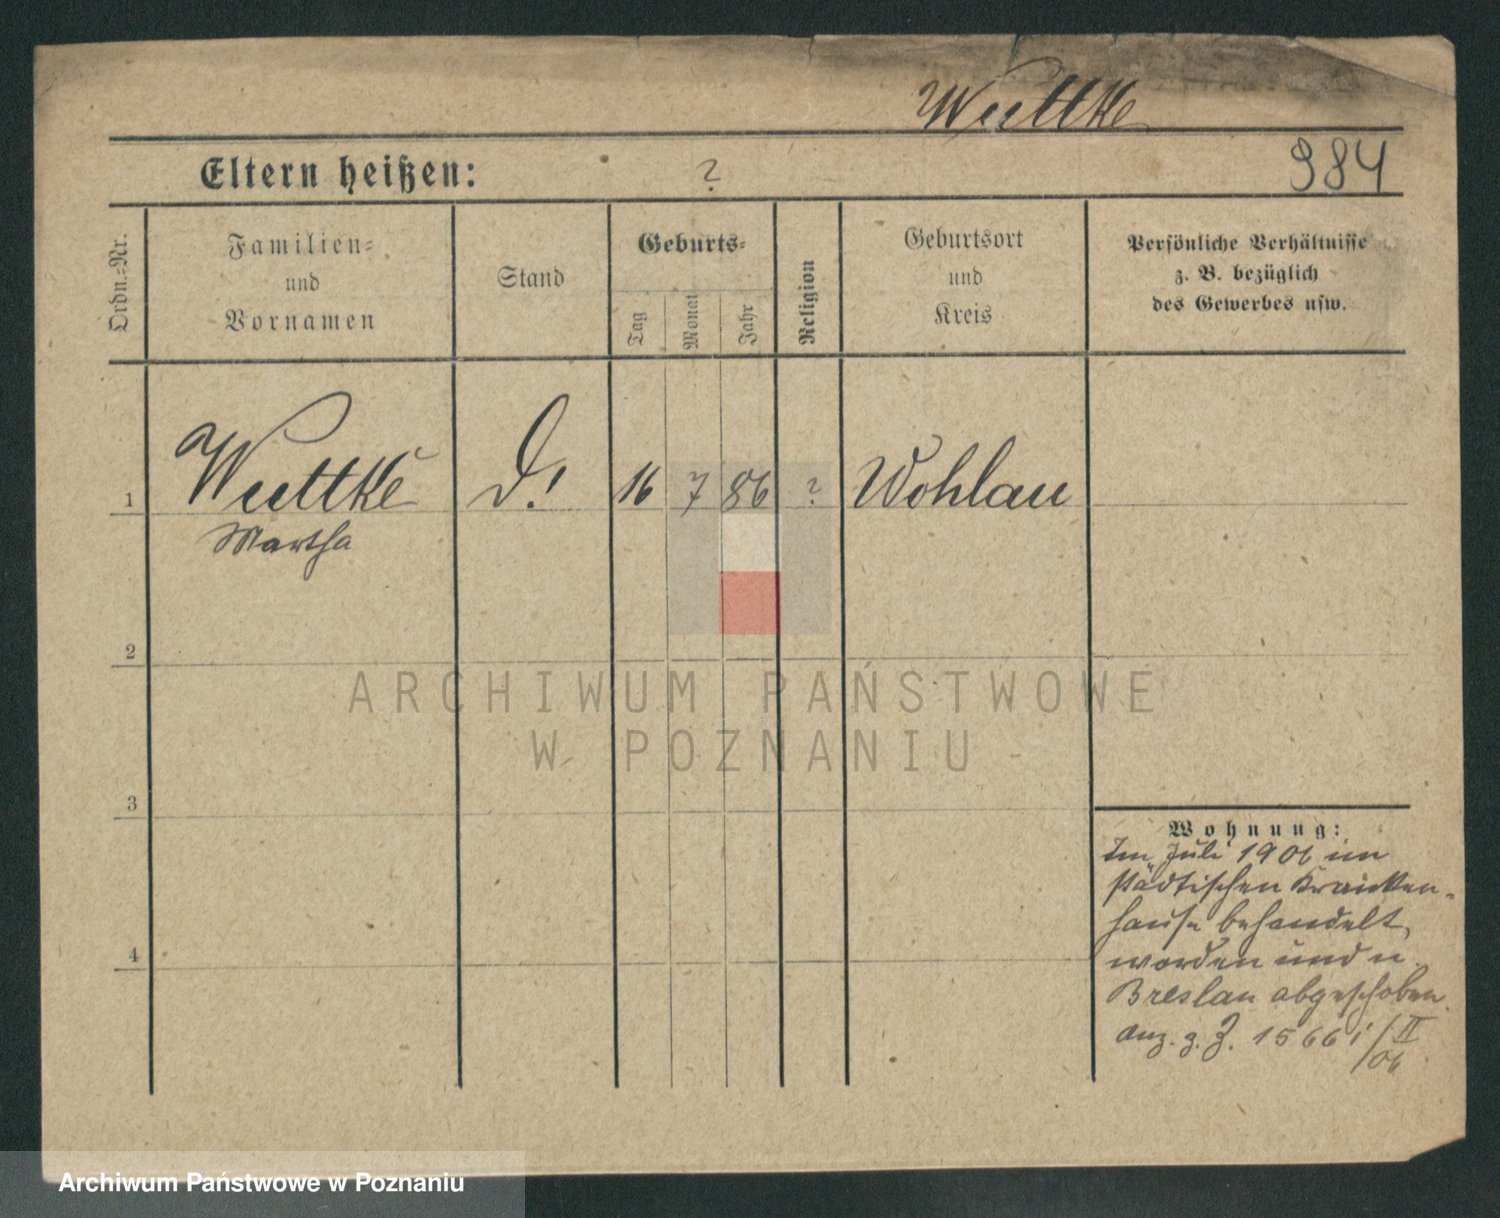 Wuttke
Eltern heißen: ? 984
Ordn.=Nr.
Familien=
und
Vornamen
Stand
Geburts=
Tag
Monat
Jahr
Religion
Geburtsort
und
Kreis
Persönliche Verhältnisse
z. B. bezüglich
des Gewerbes usw.
1 Wuttke D. 16 7 86 ? Wohlau
Martha
2
3
4
Wohnung:
Im Juli 1906 im
städtischen Kranken-
hause behandelt
worden und n.
Breslau abgeschoben.
z. Z. 15661/II
06
ARCHIWUM PAŃSTWOWE
W POZNANIU
Archiwum Państwowe w Poznaniu